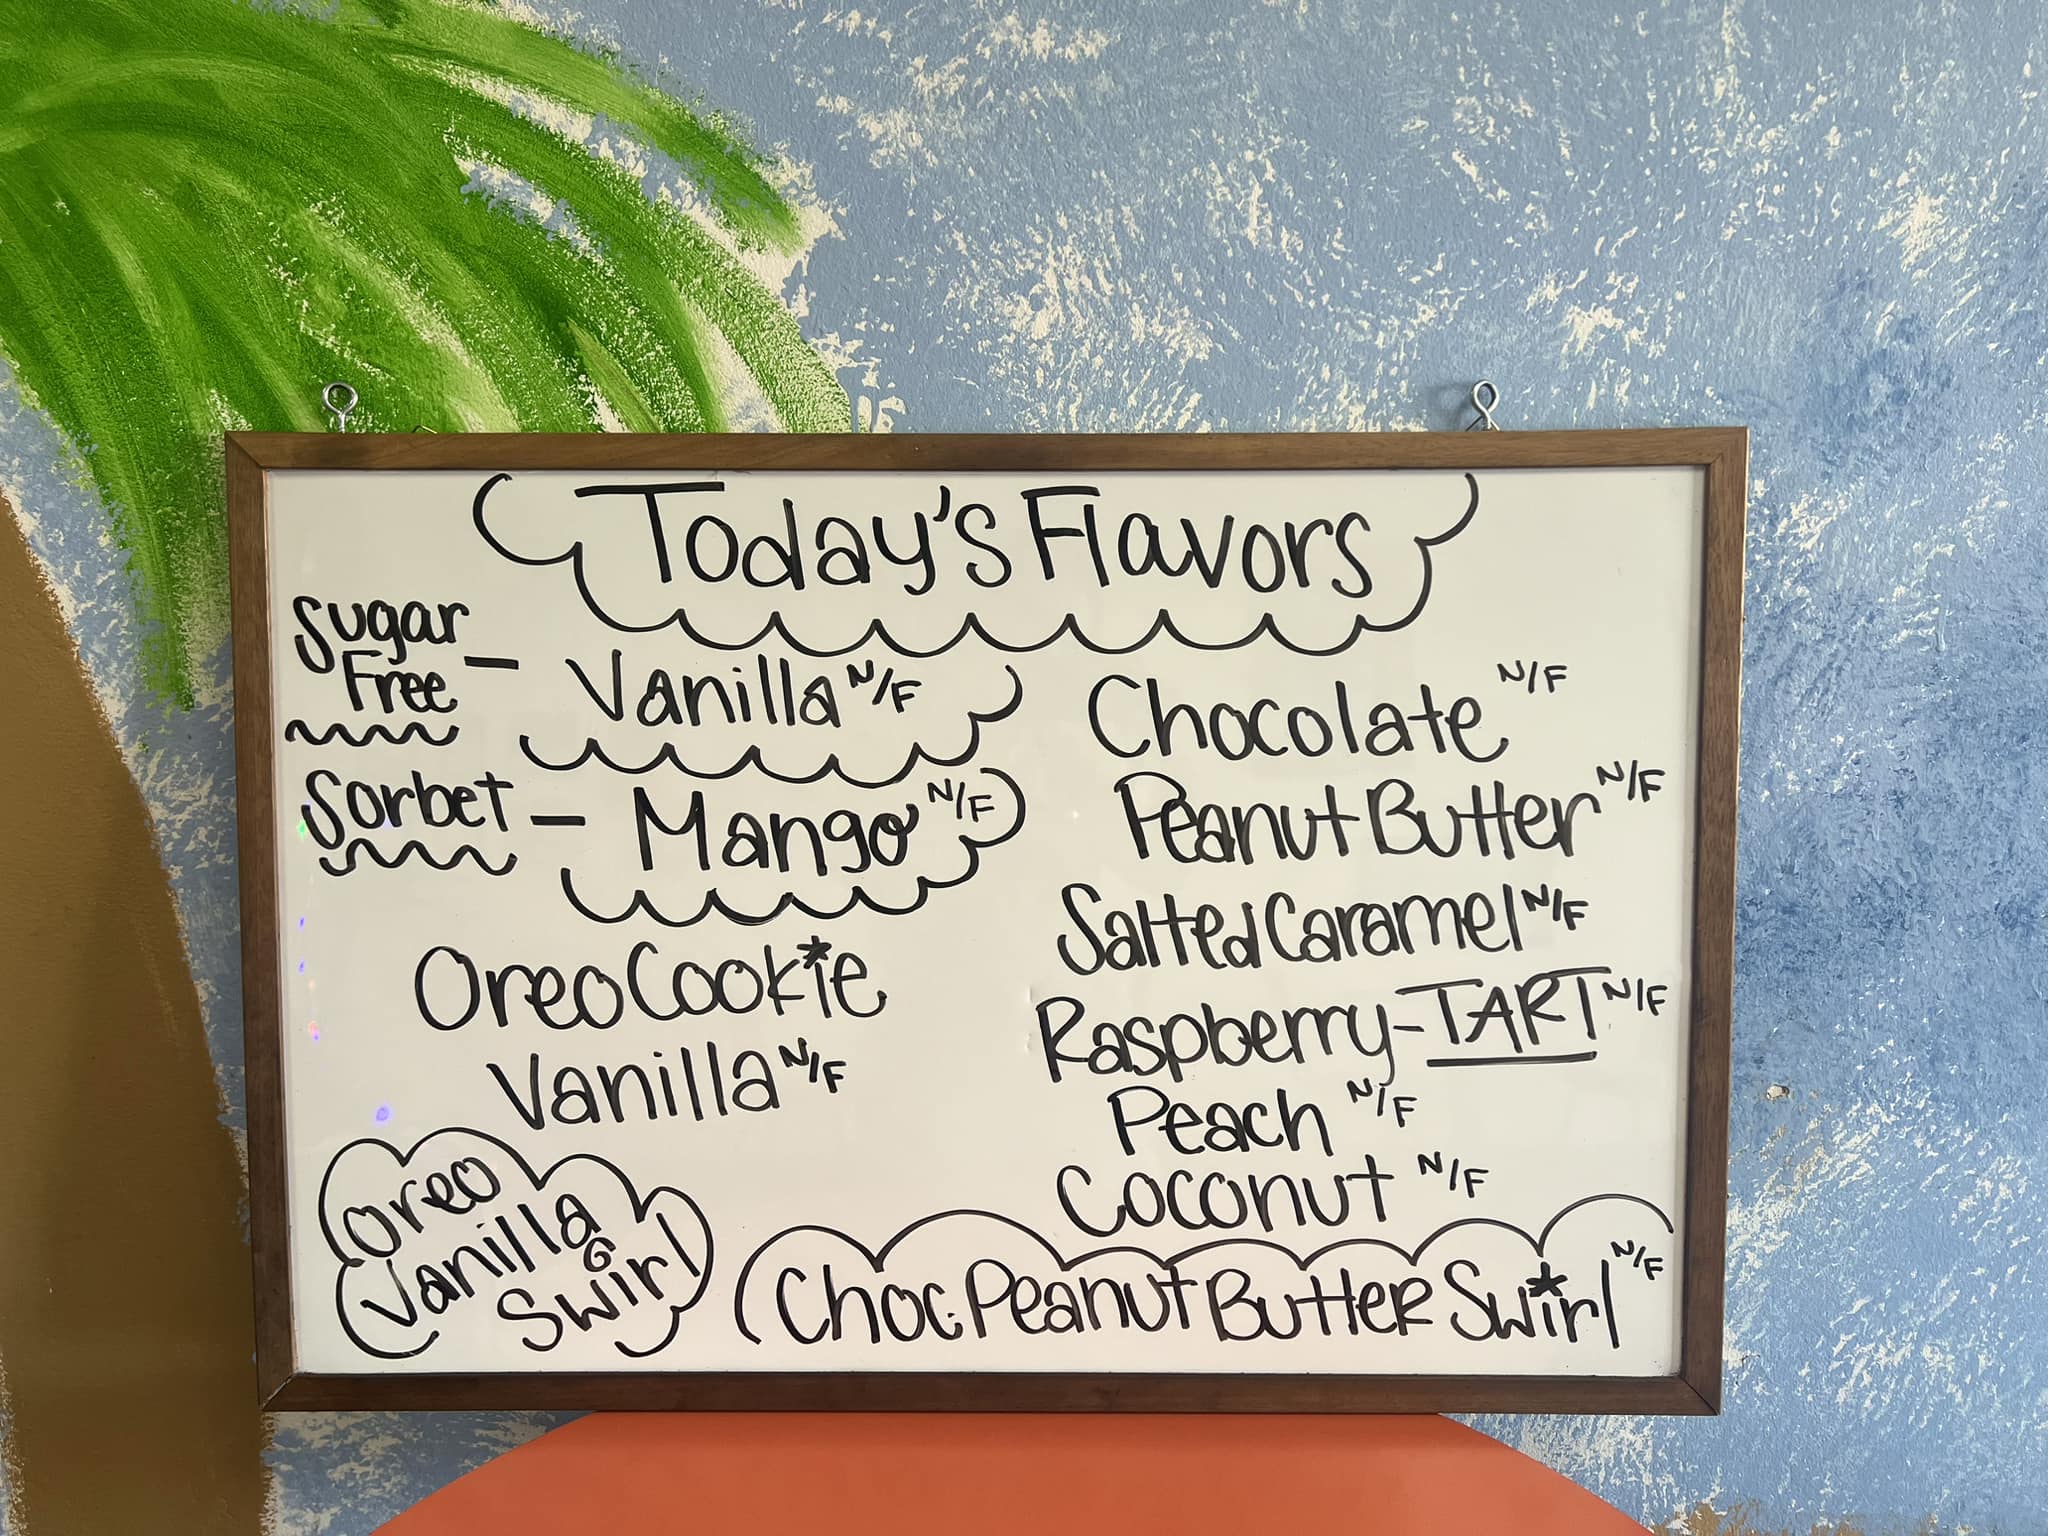 Today's Flavors
Sugar
Free - Vanilla N/F
Sorbet - Mango N/F
Oreo Cookie
Vanilla N/F
Oreo
Vanilla
Swirl
Chocolate N/F
Peanut Butter N/F
Salted Caramel N/F
Raspberry-TART N/F
Peach N/F
Coconut N/F
Choc. Peanut Butter Swirl N/F